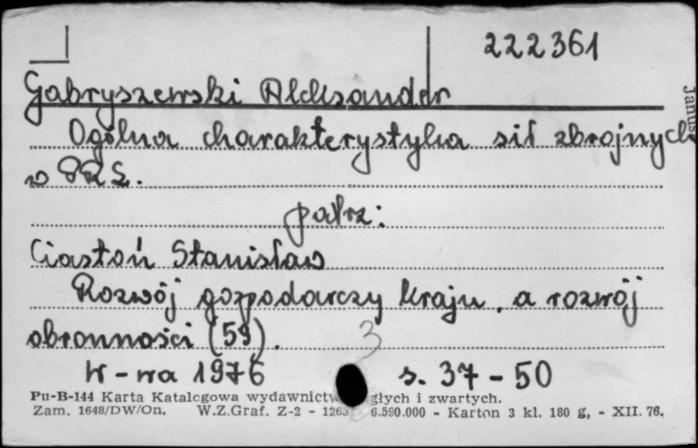 222361
Gabryszewski Aleksander
Ogólna charakterystyka sił zbrojnych
w PRL.
patrz:
Ciastoń Stanisław
Rozwój gospodarczy kraju, a rozwój
obronności (59).
3
W-wa 1976 s. 37-50
Pu-B-144 Karta Katalogowa wydawnictw głych i zwartych.
Zam. 1648/DW/On. W.Z.Graf. Z-2 - 1263 6.590.000 - Karton 3 kl. 180 g, - XII. 76.